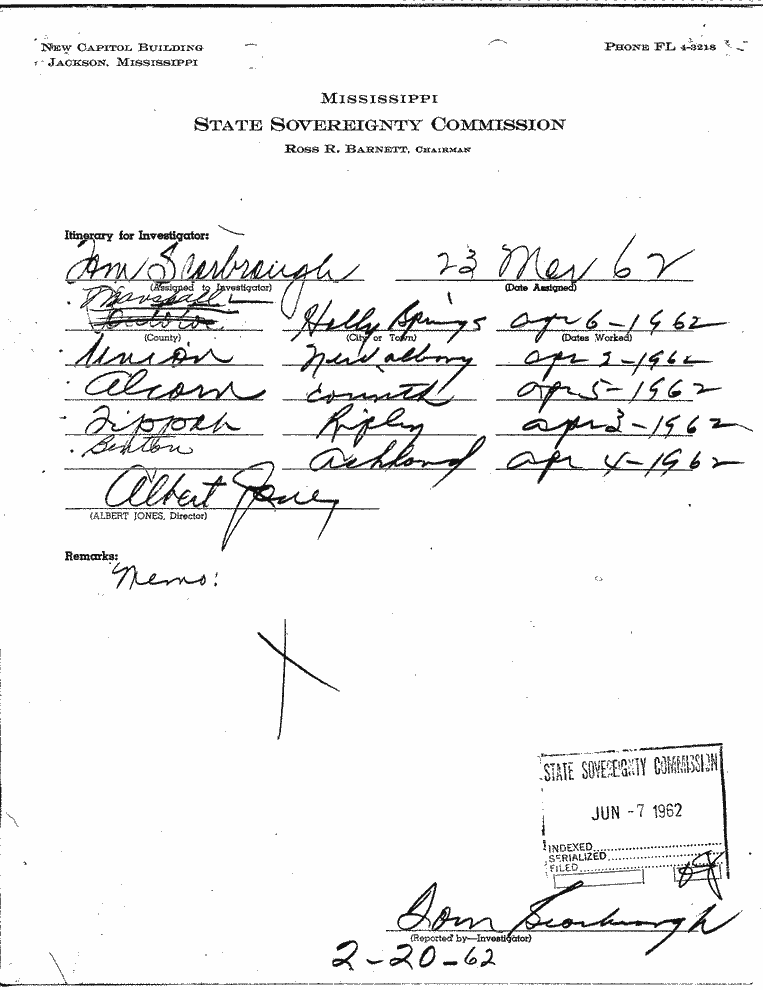 NEW CAPITOL BUILDING
JACKSON, MISSISSIPPI
PHONE FL 4-3218
MISSISSIPPI
STATE SOVEREIGNTY COMMISSION
ROSS R. BARNETT, CHAIRMAN
Itinerary for Investigator:
Tom Scarbrough 23 Mar 62
(Assigned to Investigator) (Date Assigned)
Marshall
Desoto Holly Springs apr 6-1962
(County) (City or Town) (Dates Worked)
Union New albany apr 2-1962
Alcorn Corinth apr 5-1962
Tippah Ripley apr 3-1962
Benton
Ashland apr 4-1962
Albert Jones
(ALBERT JONES, Director)
Remarks:
Memo:
STATE SOVEREIGNTY COMMISSION
JUN -7 1962
INDEXED
SERIALIZED
FILED
Tom Scarbrough
(Reported by—Investigator)
2-20-62